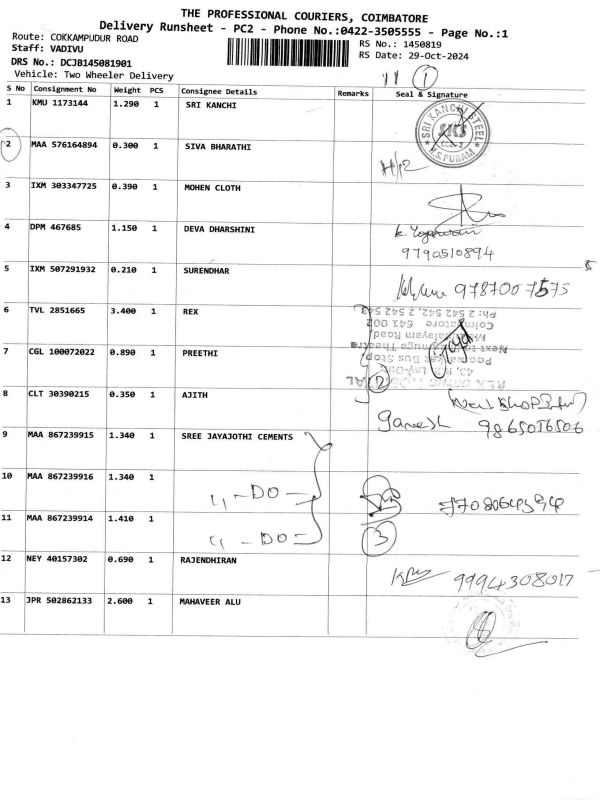 THE PROFESSIONAL COURIERS, COIMBATORE
Delivery Runsheet - PC2 - Phone No.:0422-3505555 - Page No.:1
Route: COKKAMPUDUR ROAD
RS No.: 1450819
Staff: VADIVU
RS Date: 29-Oct-2024
DRS No.: DCJB145081901
Vehicle: Two Wheeler Delivery
11 1
S No Consignment No Weight PCS Consignee Details Remarks Seal & Signature
1 KMU 1173144 1.290 1 SRI KANCHI
SRI KANCHI STEEL
SKS
CBE-2
R.S.PURAM
2 MAA 576164894 0.300 1 SIVA BHARATHI
3 IXM 303347725 0.390 1 MOHEN CLOTH
4 DPM 467685 1.150 1 DEVA DHARSHINI
9790510894
5 IXM 507291932 0.210 1 SURENDHAR
9787007575
6 TVL 2851665 3.400 1 REX
Ph: 2 542 542, 2 542 543
Coimbatore 641 002
7 CGL 100072022 0.890 1 PREETHI
2
8 CLT 30390215 0.350 1 AJITH
ganesh 9865056506
9 MAA 867239915 1.340 1 SREE JAYAJOTHI CEMENTS
10 MAA 867239916 1.340 1
11 - DO -
11 MAA 867239914 1.410 1
11 - DO -
3
12 NEY 40157302 0.690 1 RAJENDHIRAN
9994308017
13 JPR 502862133 2.600 1 MAHAVEER ALU